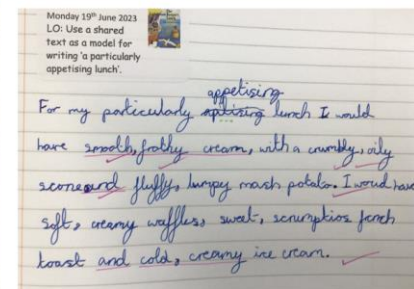 Monday 19th June 2023
LO: Use a shared
text as a model for
writing 'a particularly
appetising lunch'.
appetising
For my particularly aptising lunch I would
have smooth, frothy cream, with a crumbly, oily
scone and fluffy, lumpy mash potato. I woud have
soft, creamy waffles, sweet, scrumptios french
toast and cold, creamy ice cream.